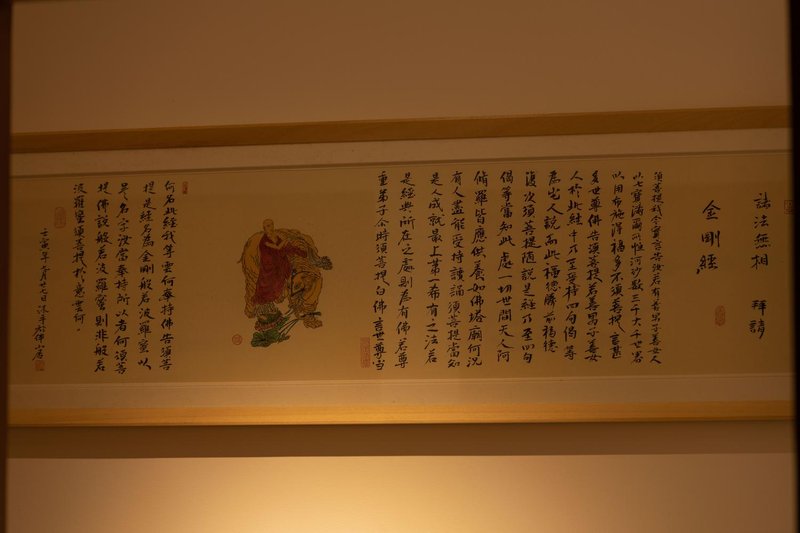 諸法無相 拜請
金剛經
須菩提我今實言告汝若有善男子善女人
以七寶滿爾所恒河沙數三千大千世界
以用布施得福多不須菩提言甚
多世尊佛告須菩提若善男子善女
人於此經中乃至受持四句偈等
為他人說而此福德勝前福德
復次須菩提隨說是經乃至四句
偈等當知此處一切世間天人阿
脩羅皆應供養如佛塔廟何況
有人盡能受持讀誦須菩提當知
是人成就最上第一希有之法若
是經典所在之處則為有佛若尊
重弟子尒時須菩提白佛言世尊當
何名此經我等云何奉持佛告須菩
提是經名為金剛般若波羅蜜以
是名字汝當奉持所以者何須菩
提佛說般若波羅蜜則非般若
波羅蜜須菩提於意云何
壬寅年 月廿七日